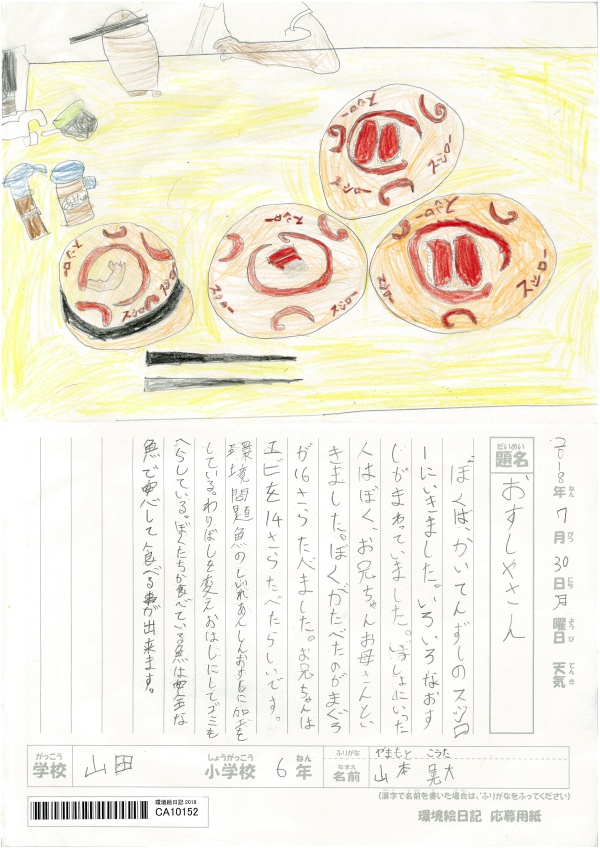 スシロー
スシロー
スシロー
スシロー
スシロー
スシロー
スシロー
スシロー
スシロー
スシロー
2018年7月30日月曜日 天気
ねん がつ にち ようび てんき
だいめい
題名
おすしやさん
ぼくは、かいてんずしのスシロ
ーにいきました。いろいろなおす
しがまわっていました。いっしょにいった
人はぼく、お兄ちゃんお母さんとい
きました。ぼくがたべたのがまぐろ
が16さらたべました。お兄ちゃんは
エビを14さらたべたらしいです。
環境問題魚の あんしんおすしに加工を
している。わりばしを変えおはしにしてゴミを
へらしている。ぼくたちが食べている魚は安全な
魚で安心して食べる事が出来ます。
がっこう
学校 山田
しょうがっこう ねん
小学校 6年
ふりがな やまもと こうた
なまえ
名前 山本 晃大
(漢字で名前を書いた場合は、ふりがなをふってください)
環境絵日記 2018
CA10152
環境絵日記 応募用紙